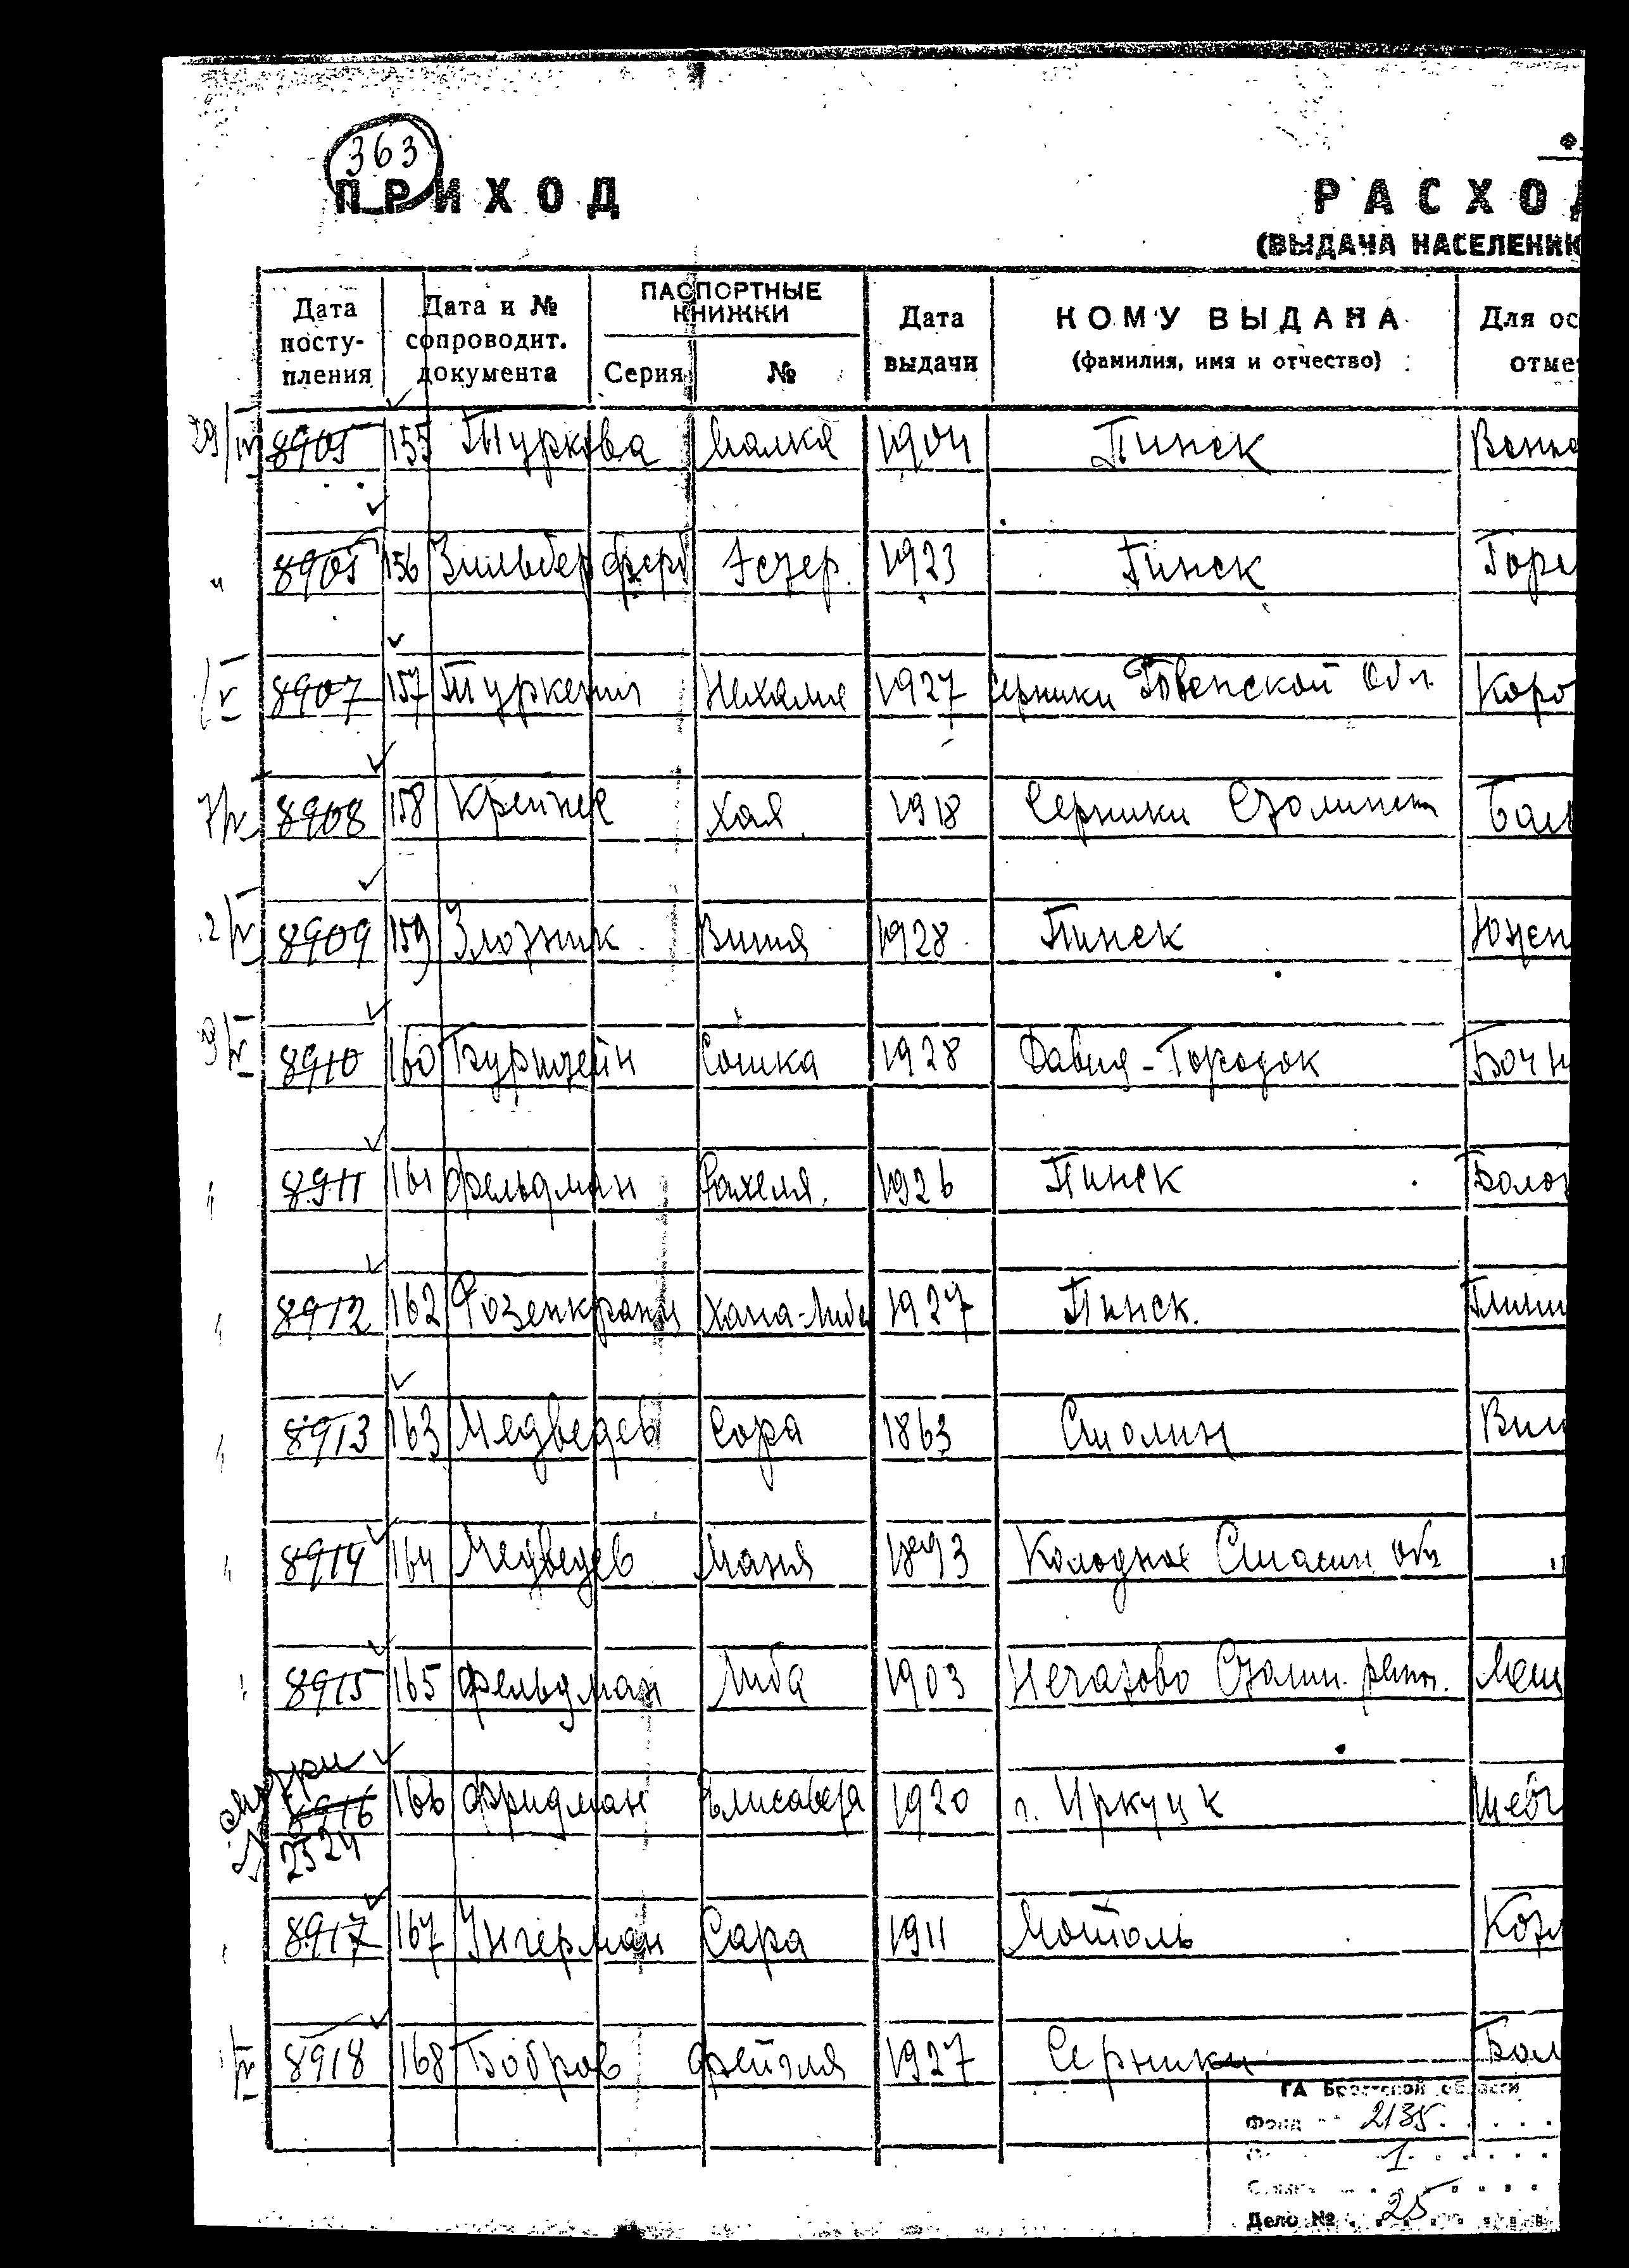 363
ПРИХОД
РАСХОД
(ВЫДАЧА НАСЕЛЕНИЮ
Дата поступления
Дата и № сопроводит. документа
ПАСПОРТНЫЕ КНИЖКИ
Серия
№
Дата выдачи
КОМУ ВЫДАНА
(фамилия, имя и отчество)
Для ос
отме
8905 155 Туркова Малка 1904 Пинск
8905 156 Зильберферб Эстер 1923 Пинск Горь
8907 157 Туркенич Нехама 1927 Серники Ровенской Обл. Коро
8908 158 Крейне Хая 1918 Серники Столинск
8909 159 Злотник 1928 Пинск
8910 160 Бурштейн Сошка 1928 Давид-Городок Боч
8911 161 Фельдман Рахеля 1926 Пинск Болот
8912 162 Розенкранц Хана-Люба 1927 Пинск.
8913 163 Медведев Сора 1863 Столин
8914 164 Медведев Маня 1893 Колодное Столин обл "
8915 165 Фельдман Люба 1903 Нечатово Столин. район.
8916 166 Фридман Елисавета 1920 г. Иркутск Шевч
2524
8917 167 Унгерман Сара 1911 Мотоль Козл
8918 168 Бобров Фейгля 1927 Серники Бол
ГА Брестской области
Фонд 2135
1
Дело № 25